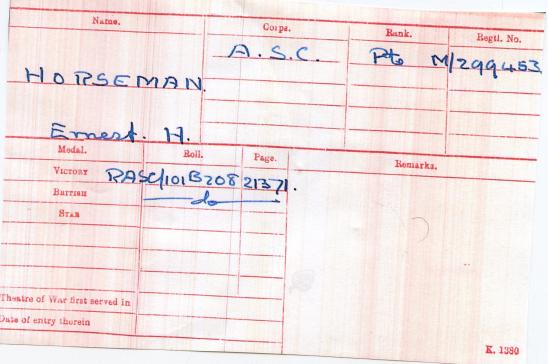 Name. Corps. Rank. Regtl. No.
HORSEMAN. A.S.C. Pte M/299453
Ernest. H.
Medal. Roll. Page. Remarks.
VICTORY RASC/101B208 21371.
BRITISH do
STAR
Theatre of War first served in
Date of entry therein
K. 1380